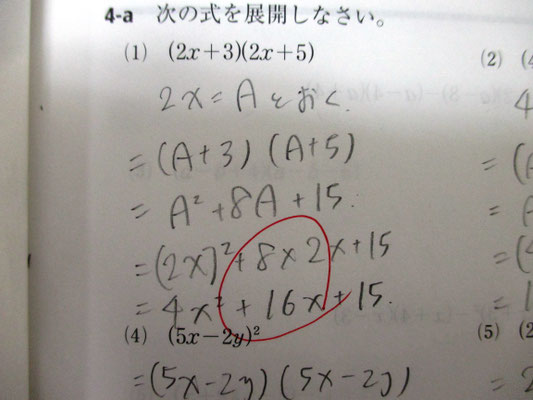 4-a 次の式を展開しなさい。
(1) (2x+3)(2x+5)
(2) (4
2x=Aとおく.
4
=(A+3)(A+5)
=(A
=A²+8A+15.
=A
=(2x)²+8×2x+15
=(4
=4x²+16x+15.
=1
(4) (5x−2y)²
(5) (2
=(5x−2y)(5x−2y)
=2